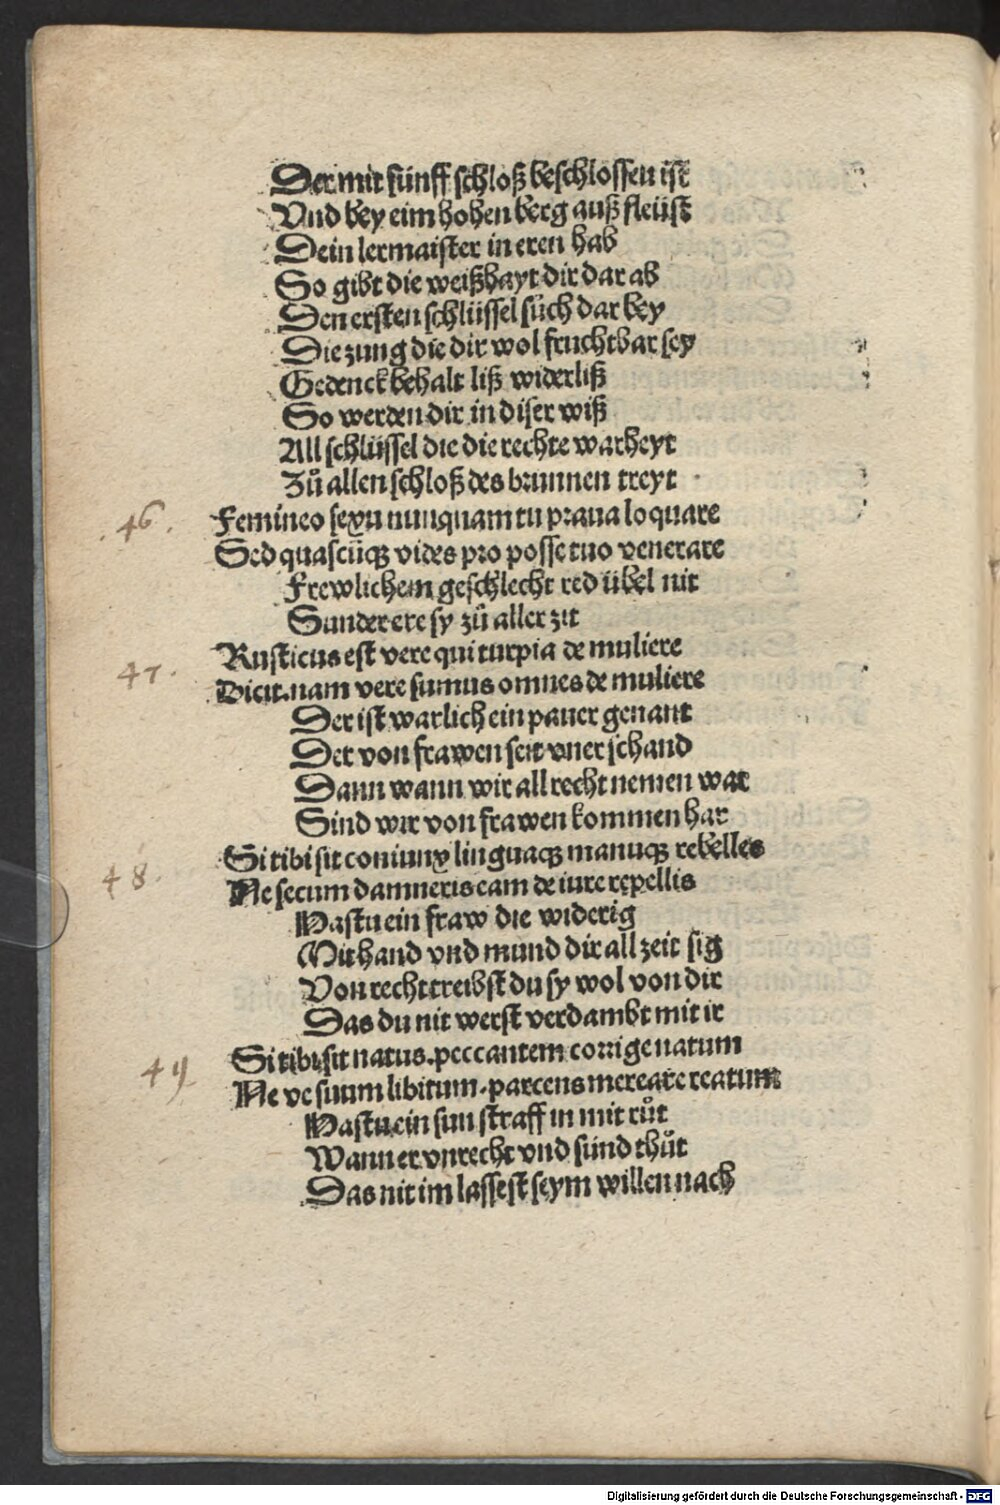 Der mit fünff schloß beschlossen ist
Vnd bey eim hohen berg auß fleüst
Dein lermaister in eren hab
So gibt die weißhayt dir dar ab
Den ersten schlüssel sůch dar bey
Die zung die dir wol fruchtbar sey
Gedenck behalt liß widerliß
So werden dir in diser wiß
All schlüssel die die rechte warheyt
Zů allen schloß des brunnen treyt
46. Femineo sexu nunquam tu praua loquare
Sed quascũqꝫ vides pro posse tuo venerare
Frewlichem geschlecht red übel nit
Sunder ere sy zů aller zit
47. Rusticus est vere qui turpia de muliere
Dicit. nam vere sumus omnes de muliere
Der ist warlich ein pauer genant
Der von frawen seit vner schand
Dann wann wir all recht nemen war
Sind wir von frawen kommen har
48. Si tibi sit coniunx linguaqꝫ manuqꝫ rebelles
Ne secum damneris eam de iure repellis
Hastu ein fraw die widerig
Mit hand vnd mund dir all zeit sig
Von recht treibst du sy wol von dir
Das du nit werst verdambt mit ir
49 Si tibi sit natus. peccantem corrige natum
Ne ve suum libitum. parcens mereare reatum
Hastu ein sun straff in mit růt
Wann er vnrecht vnd sünd thůt
Das nit im lassest seym willen nach
Digitalisierung gefördert durch die Deutsche Forschungsgemeinschaft - DFG